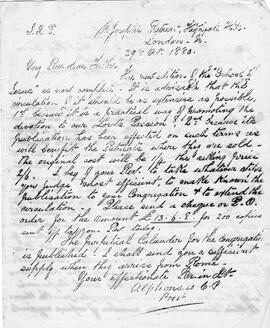 J.X.P. St Joseph's Retreat, Highgate Hill,
London - N.
29th Oct. 1883.
Very Rev. dear Father,
The new edition of the "School of
Jesus" is now complete. It is advisable that the
circulation of it should be as extensive as possible,
1st because it is a practical way of promoting the
devotion to our Lord's Passion & 2nd because its
publication has been effected on such terms as
will benefit the Retreats where they are sold.
The original cost will be 1/4 the selling price
2/6. I beg of your Rev. to take whatever steps
you judge most efficient, to make known the
publication to your Congregation & to extend the
circulation. Please send a cheque or P.O.
order for the amount £13-6-8 for 200 copies
sent off to you Par today.
The perpetual Calendar for the Congregation
is published. I shall send you a sufficient
supply when they arrive from Rome.
Your affectionate Bro. in Xt.
Alphonsus C.P.
Prov.